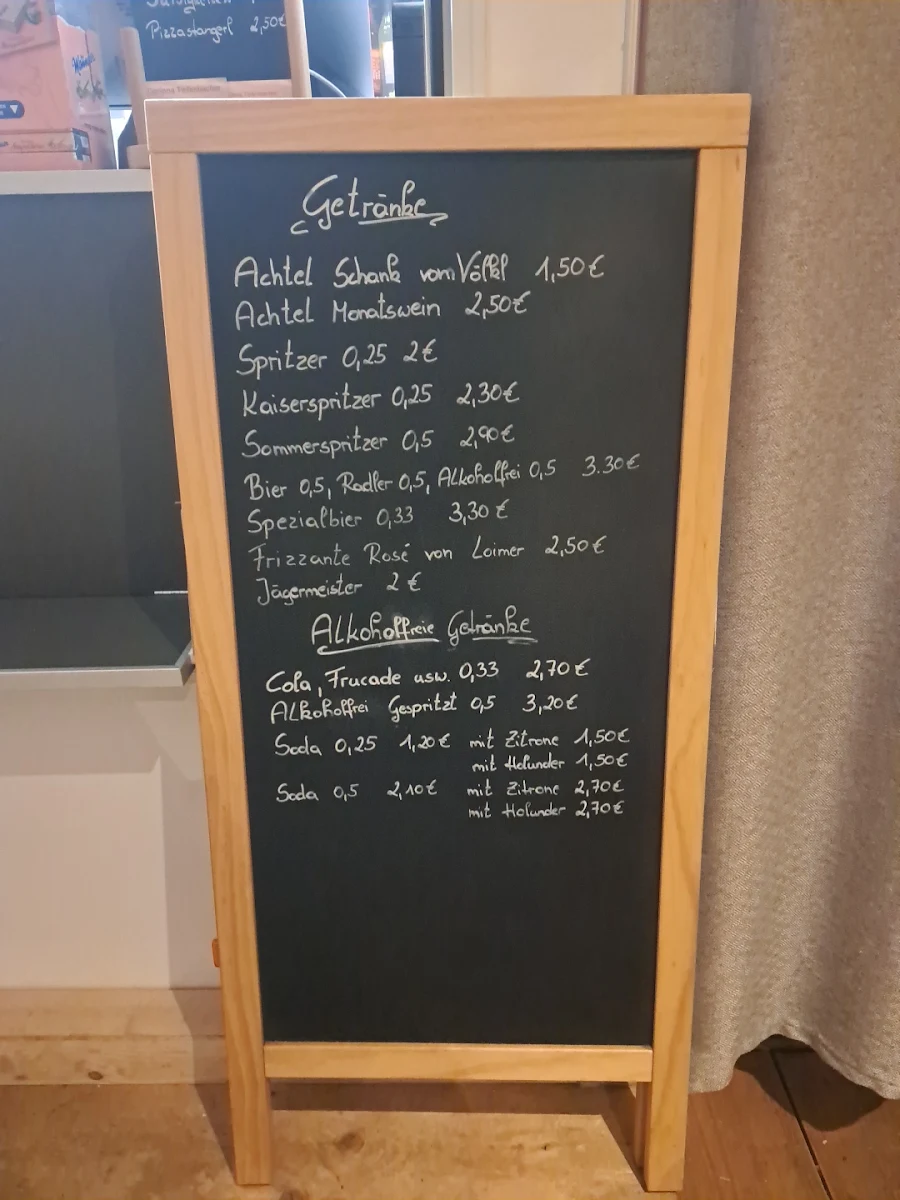 Pizzastangerl 2,50€
Getränke
Achtel Schank vom Völkl 1,50€
Achtel Monatswein 2,50€
Spritzer 0,25 2€
Kaiserspritzer 0,25 2,30€
Sommerspritzer 0,5 2,90€
Bier 0,5, Radler 0,5, Alkoholfrei 0,5 3.30€
Spezialbier 0,33 3,30€
Frizzante Rosé von Loimer 2,50€
Jägermeister 2€
Alkoholfreie Getränke
Cola, Frucade usw. 0,33 2,70€
Alkoholfrei Gespritzt 0,5 3,20€
Soda 0,25 1,20€ mit Zitrone 1,50€
mit Holunder 1,50€
Soda 0,5 2,10€ mit Zitrone 2,70€
mit Holunder 2,70€